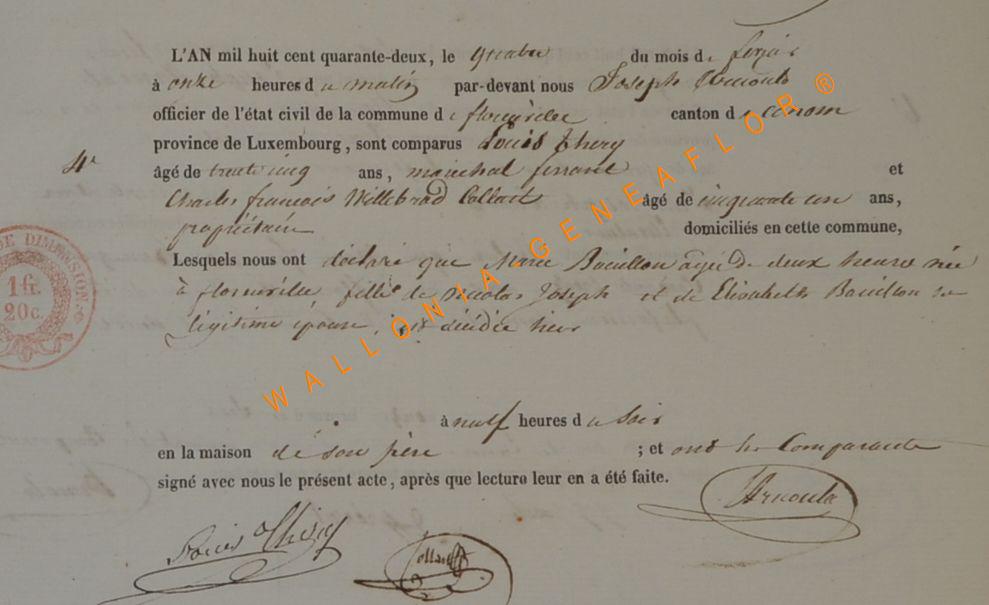 L'AN mil huit cent quarante-deux, le quatre du mois de
à onze heures du matin par-devant nous Joseph Arnould
officier de l'état civil de la commune de florenville canton d
province de Luxembourg, sont comparus Louis Thery
4e
âgé de trente cinq ans, maréchal ferrant et
Charles françois Willebrod Collard âgé de cinquante un ans,
propriétaire domiciliés en cette commune,
Lesquels nous ont déclaré que Marie Bouillon agée de deux heures née
à florenville, fille de Nicolas Joseph et de Elisabeth Bouillon sa
légitime épouse, est décédée hier
à neuf heures du soir
en la maison de son père ; et ont les Comparants
signé avec nous le présent acte, après que lecture leur en a été faite.
JArnould
Louis Thiry
Collard
DE DIMENSION
1 fr.
20c.
WALLONIA-GENEAFLOR®